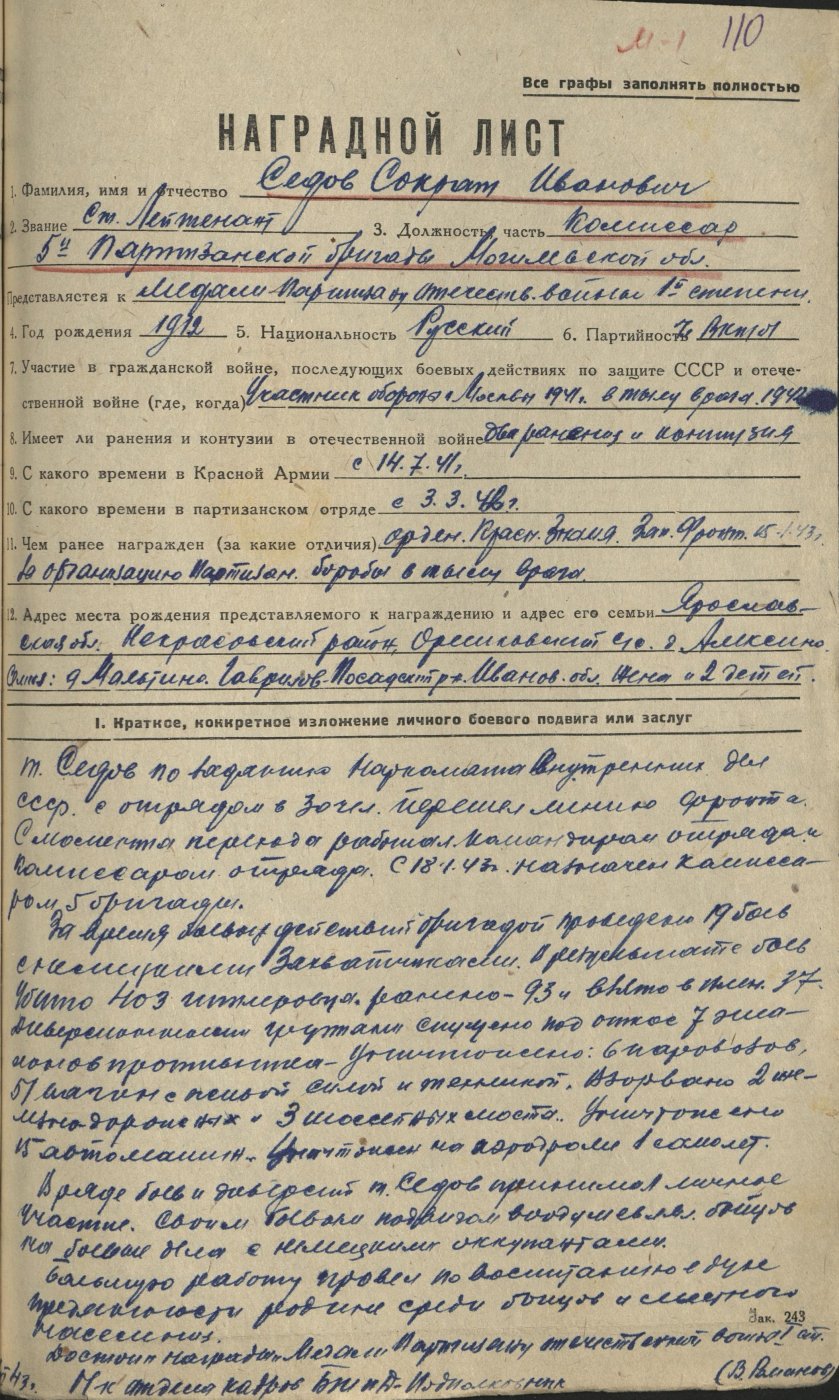 М-1 110
Все графы заполнять полностью
НАГРАДНОЙ ЛИСТ
1. Фамилия, имя и отчество Седов Сократ Иванович
2. Звание Ст. Лейтенант 3. Должность, часть Комиссар
5й Партизанской бригады Могилевской обл.
Представляется к медали Партизану отечеств. войны 1й степени.
4. Год рождения 1912 5. Национальность Русский 6. Партийность Вкп(б)
7. Участие в гражданской войне, последующих боевых действиях по защите СССР и отече-
ственной войне (где, когда) Участник обороны Москвы 1941г. в тылу врага. 1942
8. Имеет ли ранения и контузии в отечественной войне два ранения и контузия
9. С какого времени в Красной Армии с 14.7.41г.
10. С какого времени в партизанском отряде с 3.3.42г.
11. Чем ранее награжден (за какие отличия) орден. Красн. Знамя. Зап. Фронт. 15.1.43г.
за организацию Партизан. борьбы в тылу врага.
12. Адрес места рождения представляемого к награждению и адрес его семьи Ярослав-
ская обл. Некрасовский район, с/с. д. Алексино.
Семья: д. Гаврилов-Посадский р-н. Иванов. обл. жена и 2 детей.
I. Краткое, конкретное изложение личного боевого подвига или заслуг
т. Седов по заданию Наркомата Внутренних дел
СССР. с отрядом в 30 чел. перешел линию фронта.
С момента перехода работал командиром отряда и
комиссаром отряда. С 18.1.43г. назначен комисса-
ром 5 бригады.
За время боевых действий бригадой проведено 19 боев
с немецкими захватчиками. В результате боев
убито 403 гитлеровца, ранено - 93 и взято в плен. 37.
Диверсионными группами спущено под откос 7 эша-
лонов противника - Уничтожено: 6 паровозов,
51 вагон с живой силой и техникой. Взорвано 2 же-
лезно-дорожных и 3 шоссейных моста. Уничтожено
15 автомашин. Уничтожен на аэродроме 1 самолет.
В ряде боев и диверсий т. Седов принимал личное
участие. Своим боевым подвигом воодушевлял бойцов
на боевые дела с немецкими оккупантами.
Большую работу провел по воспитанию в духе
преданности родине среди бойцов и местного
населения.
Зак. 243
Достоин награды Медали Партизану отечественной войны I ст.
43г. Н-к отдела кадров Подполковник (В. Романов)